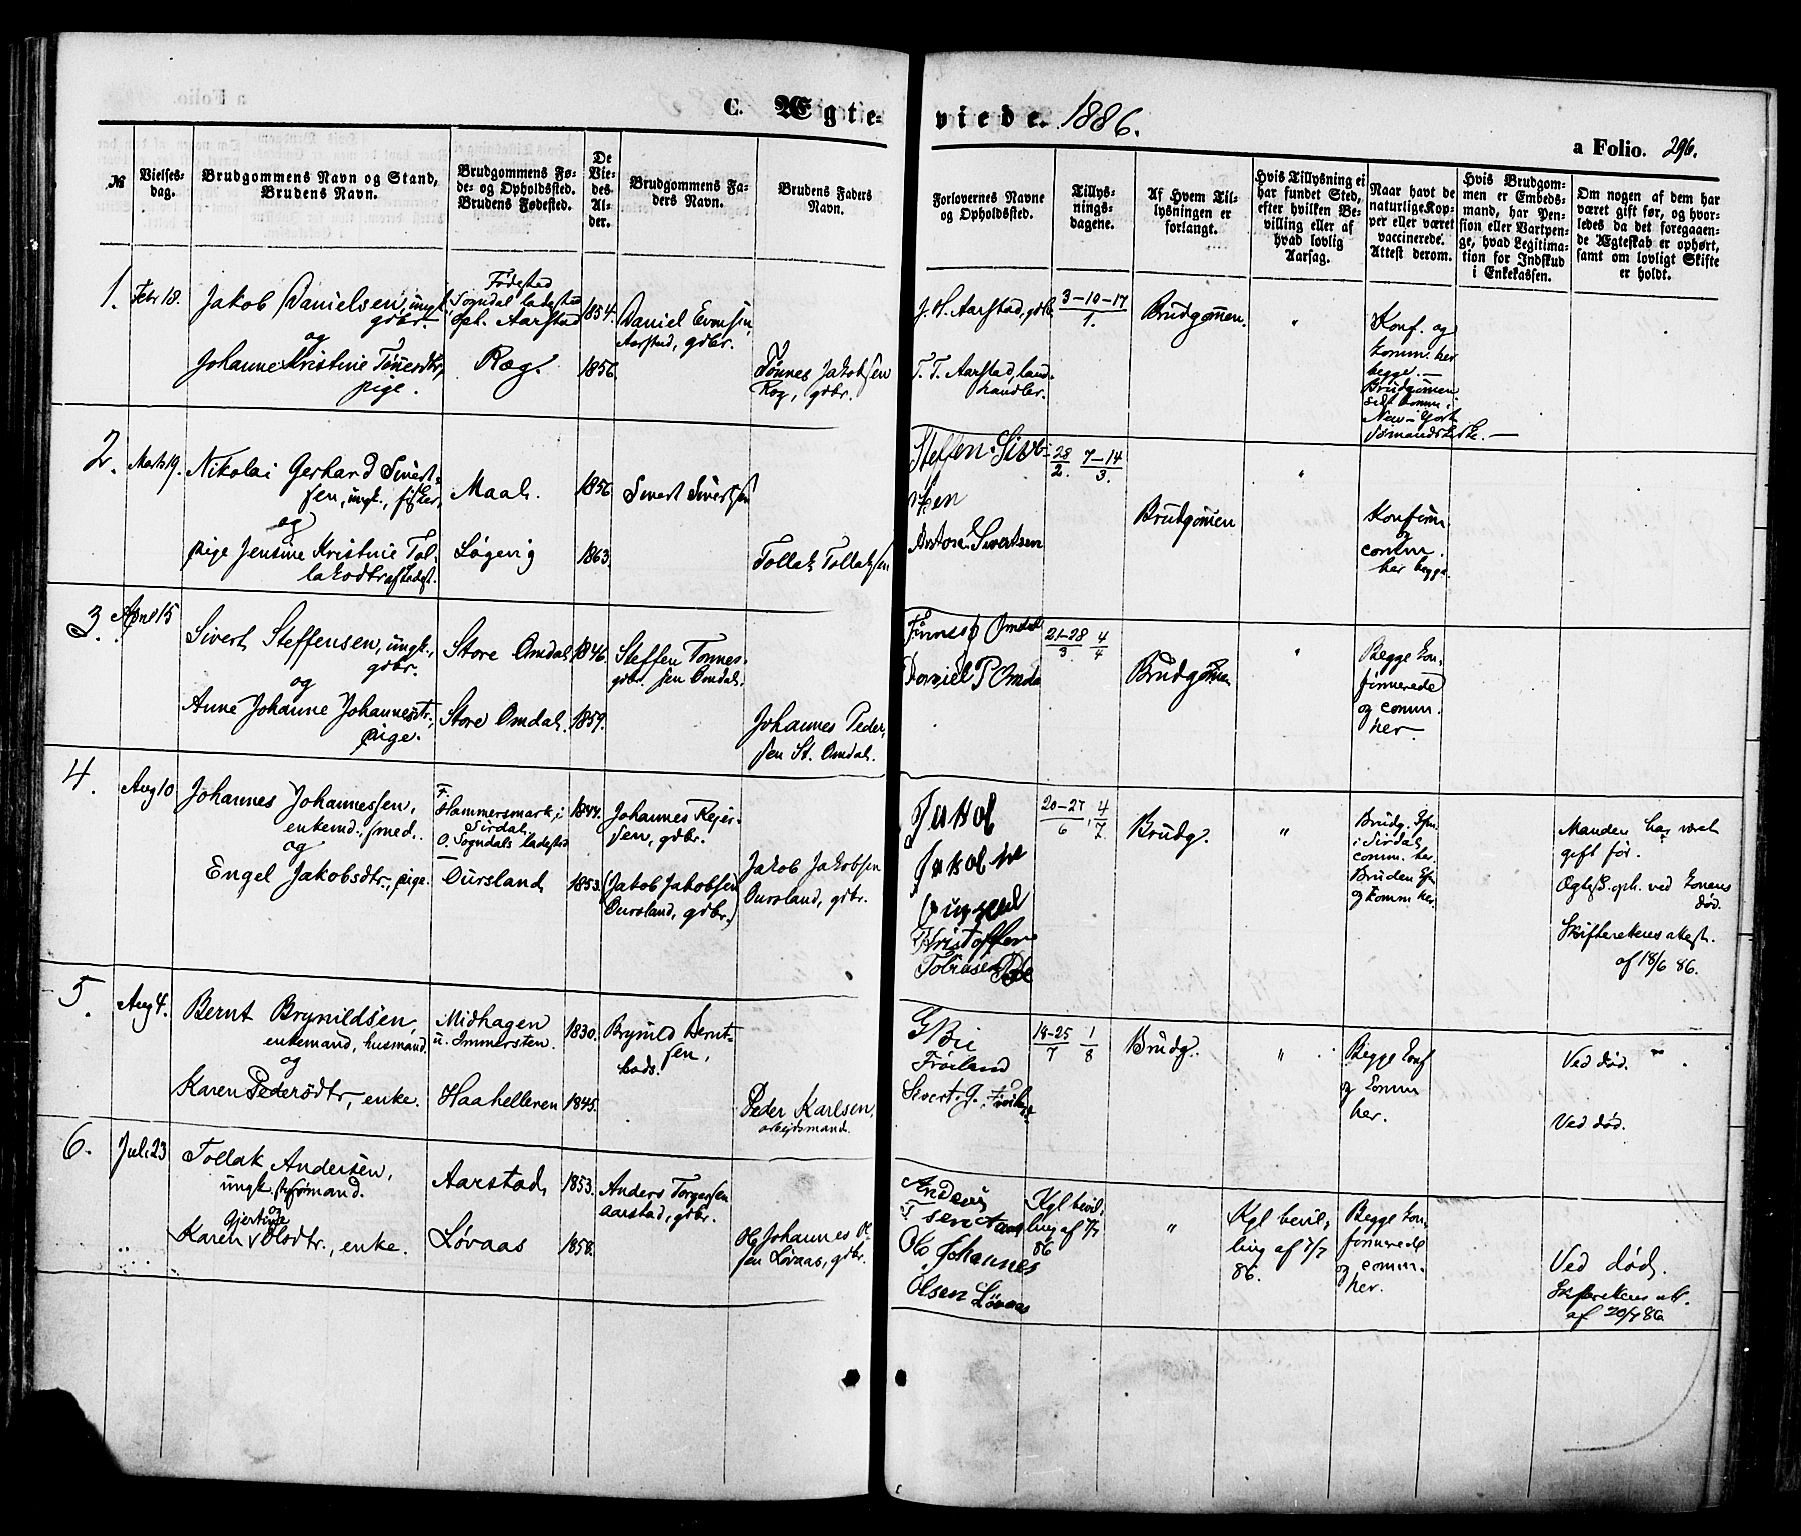 C. Ægte-
viede. 1886.
a Folio. 296.
№
Vielses-
dag.
Brudgommens Navn og Stand,
Brudens Navn.
Brudgommens Fø-
de- og Opholdssted.
Brudens Fødested.
De
Vie-
des
Al-
der.
Brudgommens Fa-
ders Navn.
Brudens Faders
Navn.
Forlovernes Navne
og Opholdssted.
Tillys-
nings-
dagene.
Af Hvem Til-
lysningen er
forlangt.
Hvis Tillysning ei
har fundet Sted,
efter hvilken Be-
villing eller af
hvad lovlig
Aarsag.
Naar havt de
naturlige Kop-
per eller været
vaccinerede.
Attest derom.
Hvis Brudgom-
men er Embeds-
mand, har Pen-
sion eller Vartpen-
ge, hvad Legitima-
tion for Indskud
i Enkekassen.
Om nogen af dem har
været gift før, og hvor-
ledes da det foregaaen-
de Ægteskab er ophørt,
samt om lovligt Skifte
er holdt.
1. Febr 18.
Jakob Danielsen, ungk.
gdbr.
og
Johanne Kristine Tønnesdtr,
pige.
Fødested
Sogndal ladested
Opl. Aarstad
Ræg.
1854.
1856.
Daniel Evensen,
Aarstad, gdbr.
Tønnes Jakobsen
Ræg, gdbr.
J. H. Aarstad, gdb.
T. T. Aarstad, land-
handler.
3-10-17
1.
Brudgommen.
"
Konf. og
komm. her
begge.—
Brudgommen
sidst komm. i
New-York
Sømandskirke.—
2. Marts 19.
Nikolai Gerhard Sivert-
sen, ungk., fisker,
og
pige Jensine Kristine Tol-
laksdtr af Ladest.
Maal.
Løgevig
1856
1863.
Sivert Sivertsen
Tollak Tollaksen
Steffen Sivert-
sen
Anton Sivertsen
28 7-14
2. 3.
Brudgommen
"
Konfirm
og
comm.
her begge.
3. April 15
Sivert Steffensen, ungk.,
gdbr.
og
Anne Johanne Johannesdtr.,
pige.
Store Omdal
Store Omdal.
1846.
1859.
Steffen Tønnes-
gdbr. sen Omdal.
Johannes Peder-
sen St. Omdal.
Daniel P Omda
21-28 4
3. 4
Brudgommen
"
Begge kon-
firmerede
og comm.
her.
4. Aug 10
Johannes Johannessen,
enkemd., smed.
og
Engel Jakobsdtr., pige.
F.
Hammersmark, i
Sirdal,
O. Sogndals ladested
Oursland
1844.
1853.
Johannes Rejer-
sen, gdbr.
(Jakob Jakobsen
Oursland, gdbr.)
Jakob Jakobsen
Oursland, gdbr.
Jakob
Kristoffer
Tobiasen
20-27, 4
6 7
Brudg.
"
Brudg. Kfm.
i Sirdal,
comm. her.
Bruden Kfm.
og komm. her.
Manden har været
gift før.
Ægtesk. oph. ved konens
død.
Skifterettens attest.
af 18/6 86.
5. Aug 4.
Bernt Brynildsen,
enkemand, husmand.
og
Karen Pedersdtr, enke.
Midhagen
u. Immersten.
Haahelleren
1830.
1845.
Brynild Bernt-
sen,
Peder Karlsen,
arbejdsmand.
Frøiland
Sivert G. Frøiland
18-25 1
7 8
Brudg.
"
Begge konf
og komm
her.
Ved død. "
Ved død.
6. Juli 23
Tollak Andersen,
ungk. sømand.
og
Gjertine
Karen v Olsdtr., enke.
Aarstad,
Løvaas
1853.
1858.
Anders Torgersen
Aarstad, gdbr.
Johannes Ol-
sen Løvaas, gdbr.
Johannes
Olsen Løvaas
Kgl bevil-
ling af 7/7
86
"
Kgl bevil-
ling af 7/7
86.
Begge kon-
firmerede
og comm.
her.
Ved død.
Skifterettens att.
af 20/7 86